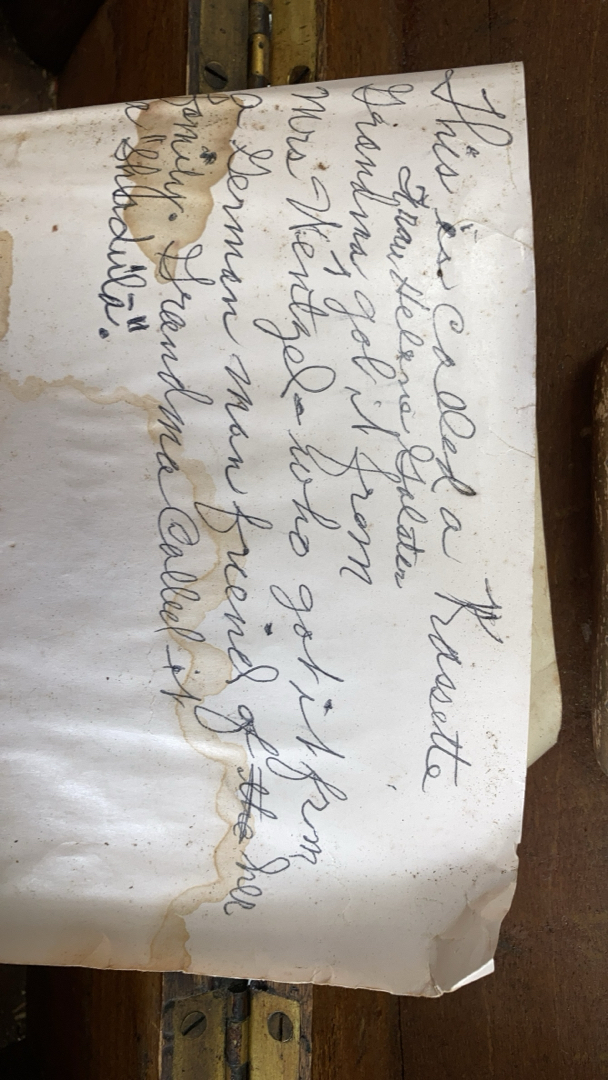 This is called a Kassette
Frau Helene Galster
Grandma got it from
Mrs Wentzel - who got it frm
a German man friend of the her
family. Grandma Called it
a "Shadula".